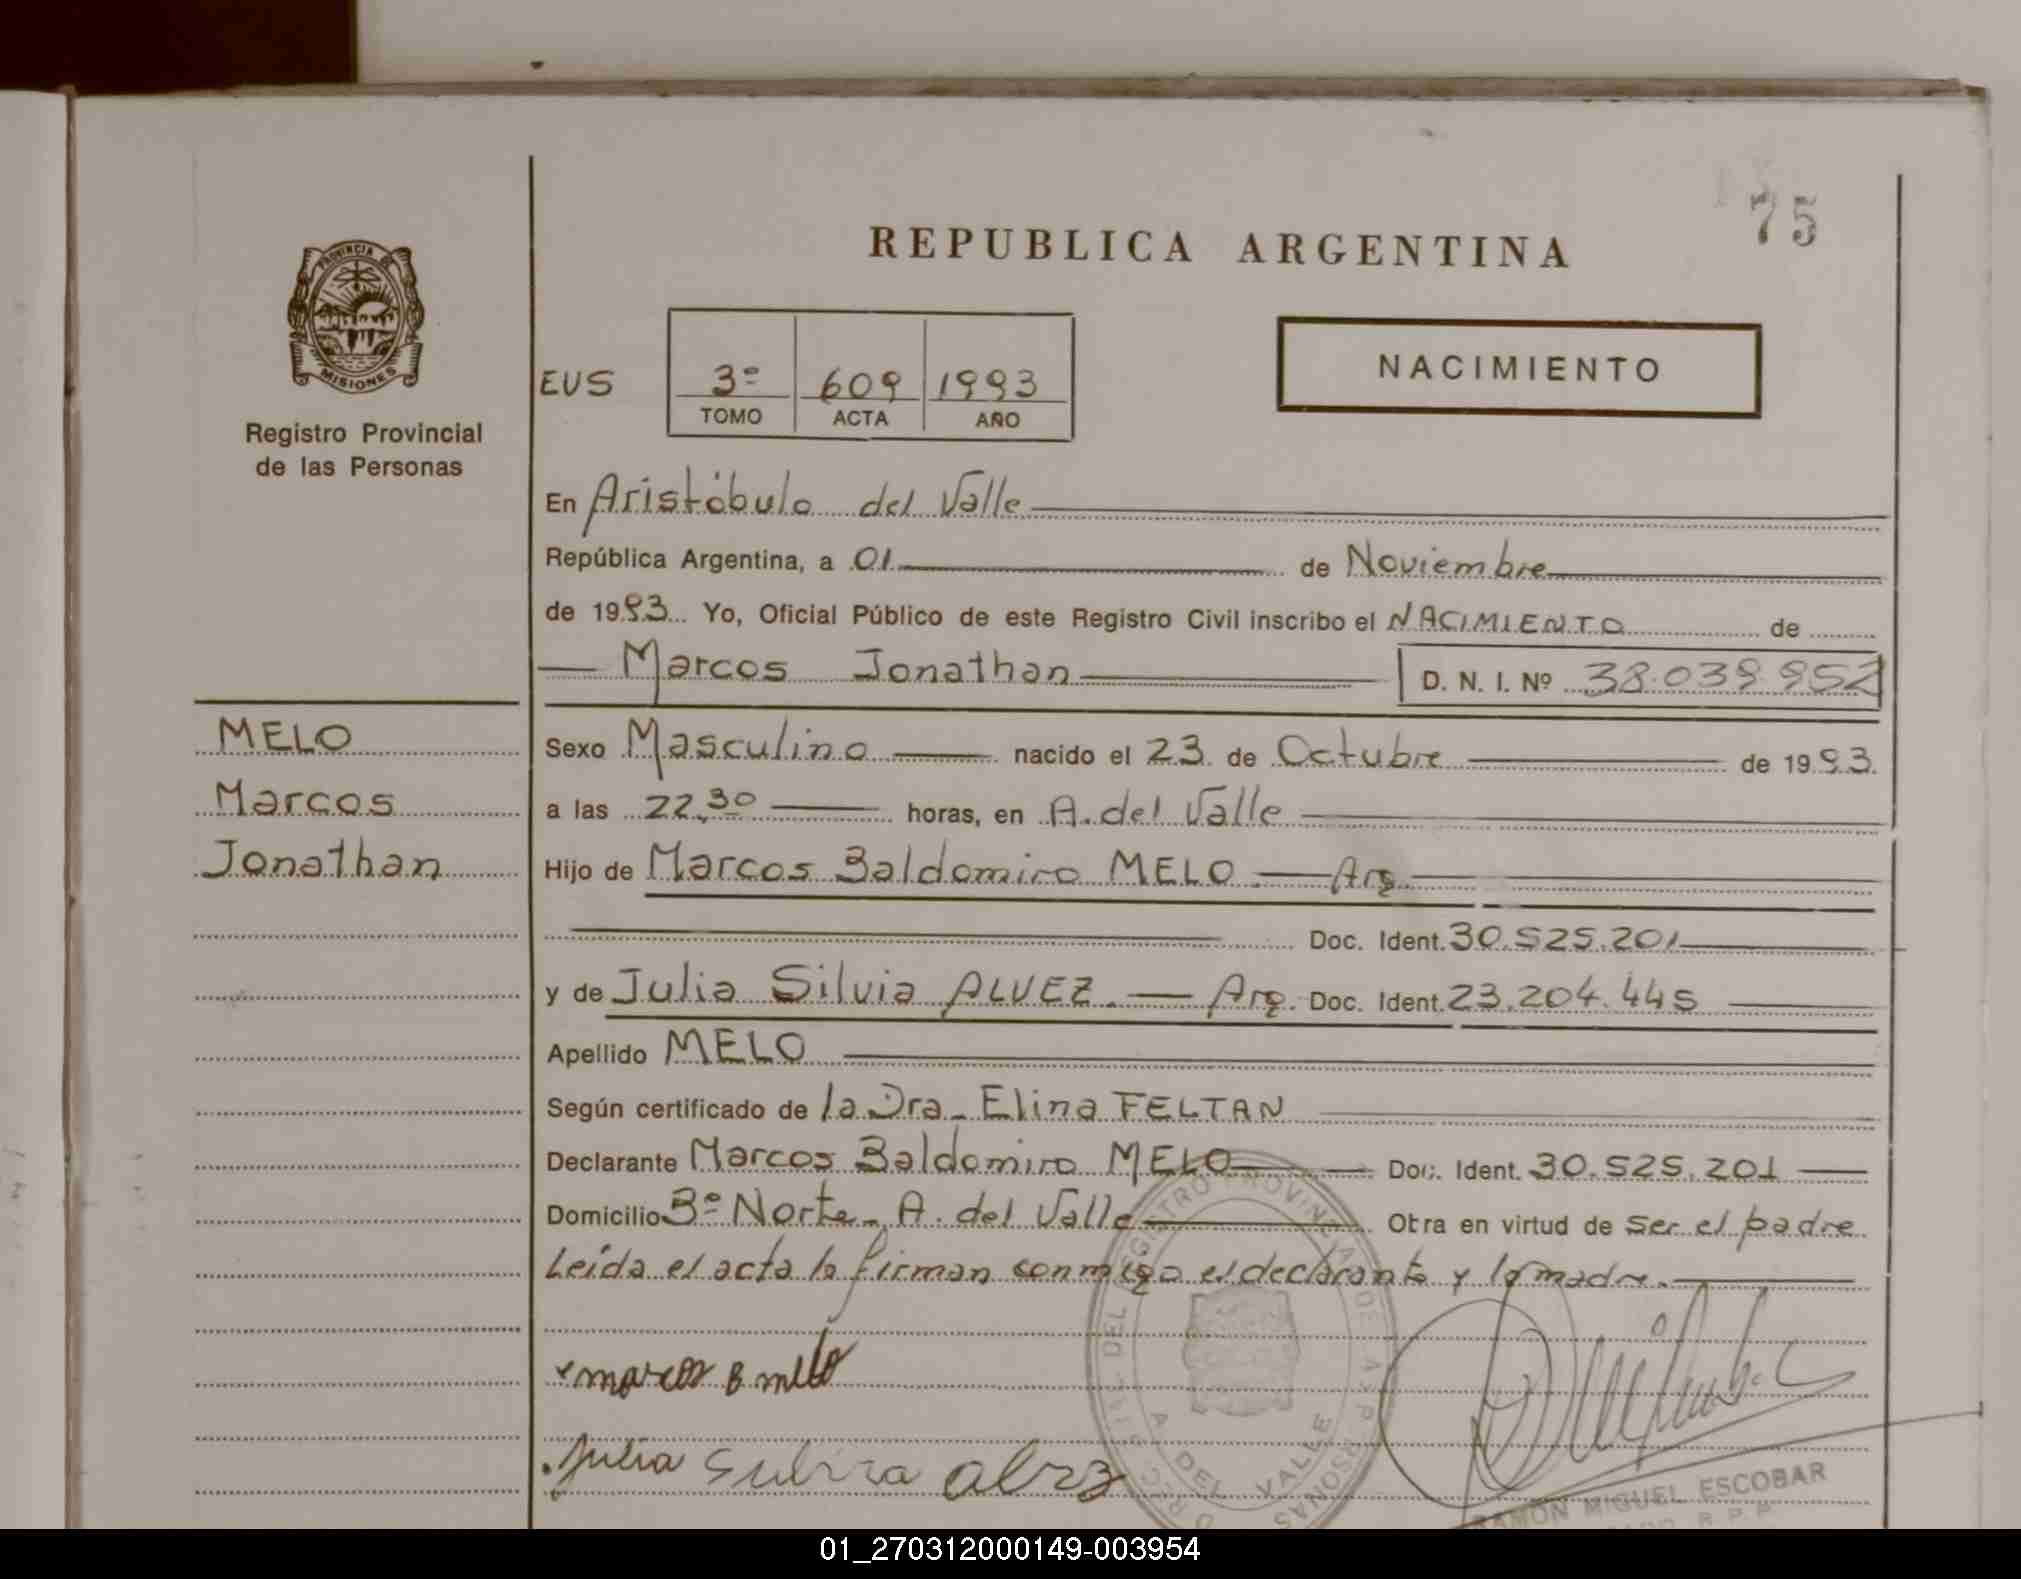 75
REPUBLICA ARGENTINA
PROVINCIA DE
MISIONES
Registro Provincial
de las Personas
EUS 3º 609 1993
TOMO ACTA AÑO
NACIMIENTO
En Aristóbulo del Valle
República Argentina, a 01 de Noviembre
de 1993 Yo, Oficial Público de este Registro Civil inscribo el NACIMIENTO de
Marcos Jonathan D. N. I. Nº 38.039.952
MELO
Marcos
Jonathan
Sexo Masculino nacido el 23 de Octubre de 1993.
a las 22,30 horas, en A. del Valle
Hijo de Marcos Baldomiro MELO. Arg.
Doc. Ident. 30.525.201
y de Julia Silvia ALVEZ. Arg. Doc. Ident. 23.204.445
Apellido MELO
Según certificado de la Dra. Elina FELTAN
Declarante Marcos Baldomiro MELO Doc. Ident. 30.525.201
Domicilio 3º Norte - A. del Valle Obra en virtud de ser el padre
Leída el acta la firman conmigo el declarante y la madre.
marcos B melo
Julia
RAMON MIGUEL ESCOBAR
R.P.P.
DEL REGISTRO PROVINCIAL DE LAS PERSONAS
A. DEL VALLE
01_270312000149-003954